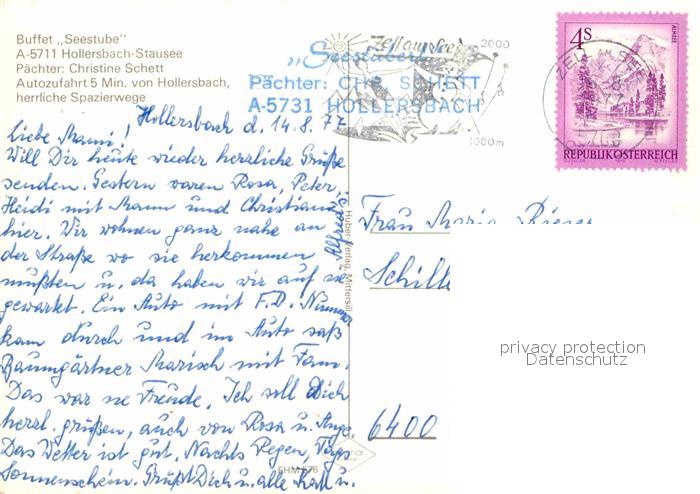 Buffet „Seestube"
A-5711 Hollersbach-Stausee
Pächter: Christine Schett
Autozufahrt 5 Min. von Hollersbach,
herrliche Spazierwege
„Seestube"
Pächter: CHR. SCHETT
A-5731 HOLLERSBACH
Zell am See
2000
1000m
4S
ALMSEE
REPUBLIK ÖSTERREICH
ZELL AM SEE
Hollersbach d. 14.8.77
Liebe Mami!
Will Dir heute wieder herzliche Grüße
senden. Gestern waren Rosa, Peter,
Heidi mit Mann und Christian
hier. Wir wohnen ganz nahe an
der Straße wo sie herkommen
mußten u. da haben wir auf sie
gewartet. Ein Auto mit F.D. Nummer
kam durch und im Auto saß
Baumgärtner Marisch mit Fam.
Das war ne Freude. Ich soll Dich
herzl. grüßen, auch von Rosa u. Ange.
Das Wetter ist gut. Nachts Regen, Tags
Sonnenschein. Grüßt Dich u. alle
Alfred
Huber-Verlag, Mittersill
Frau Maria
Schill
6400
privacy protection
Datenschutz